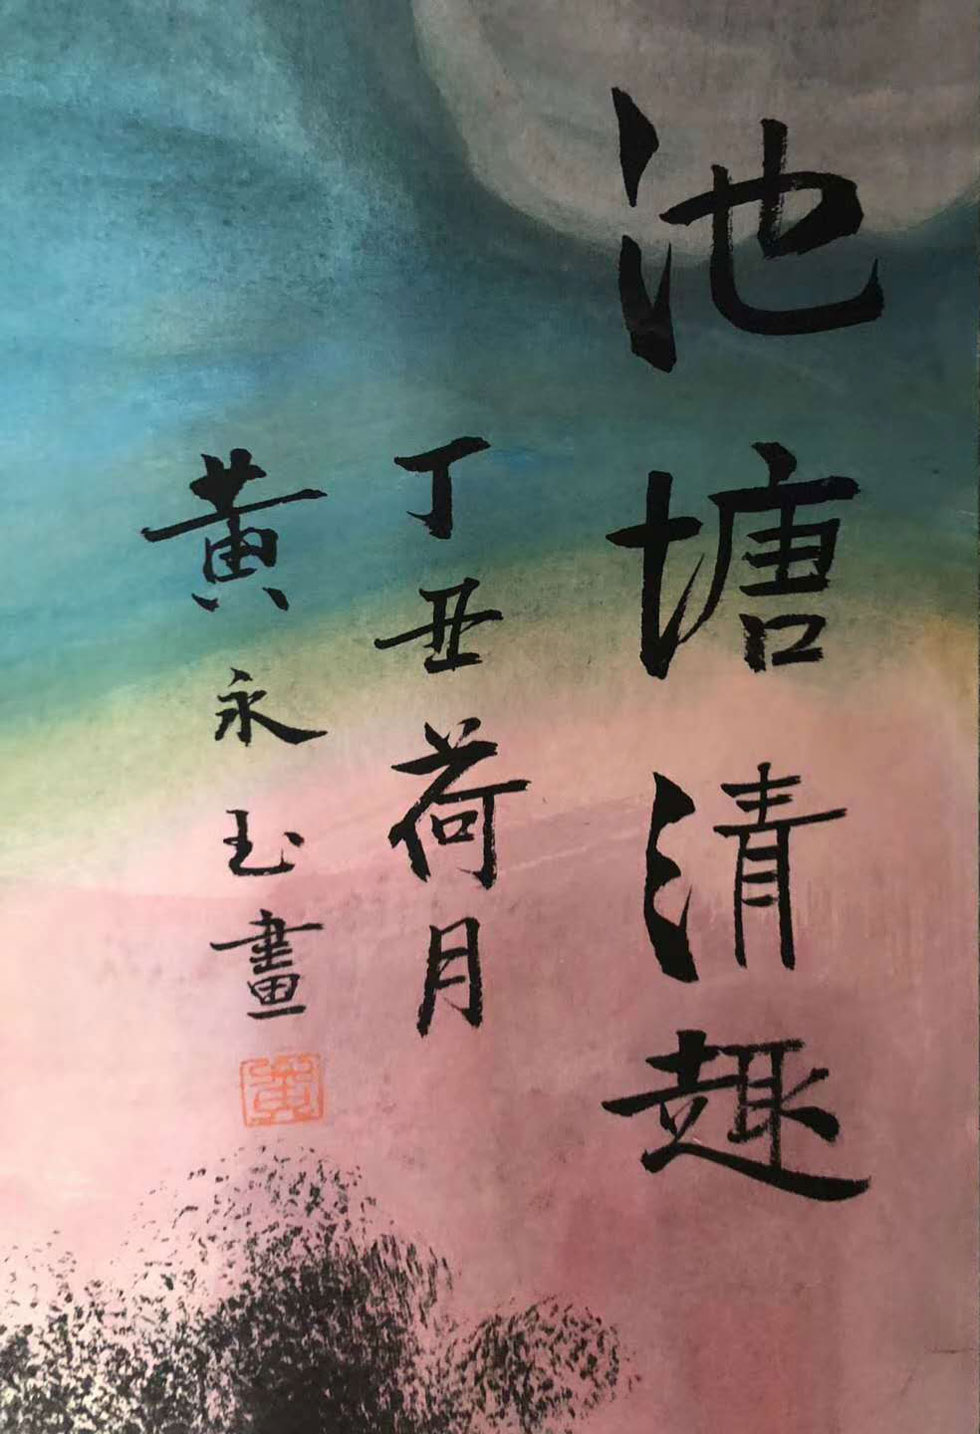 池塘清趣
丁丑荷月
黄永玉畫
黄